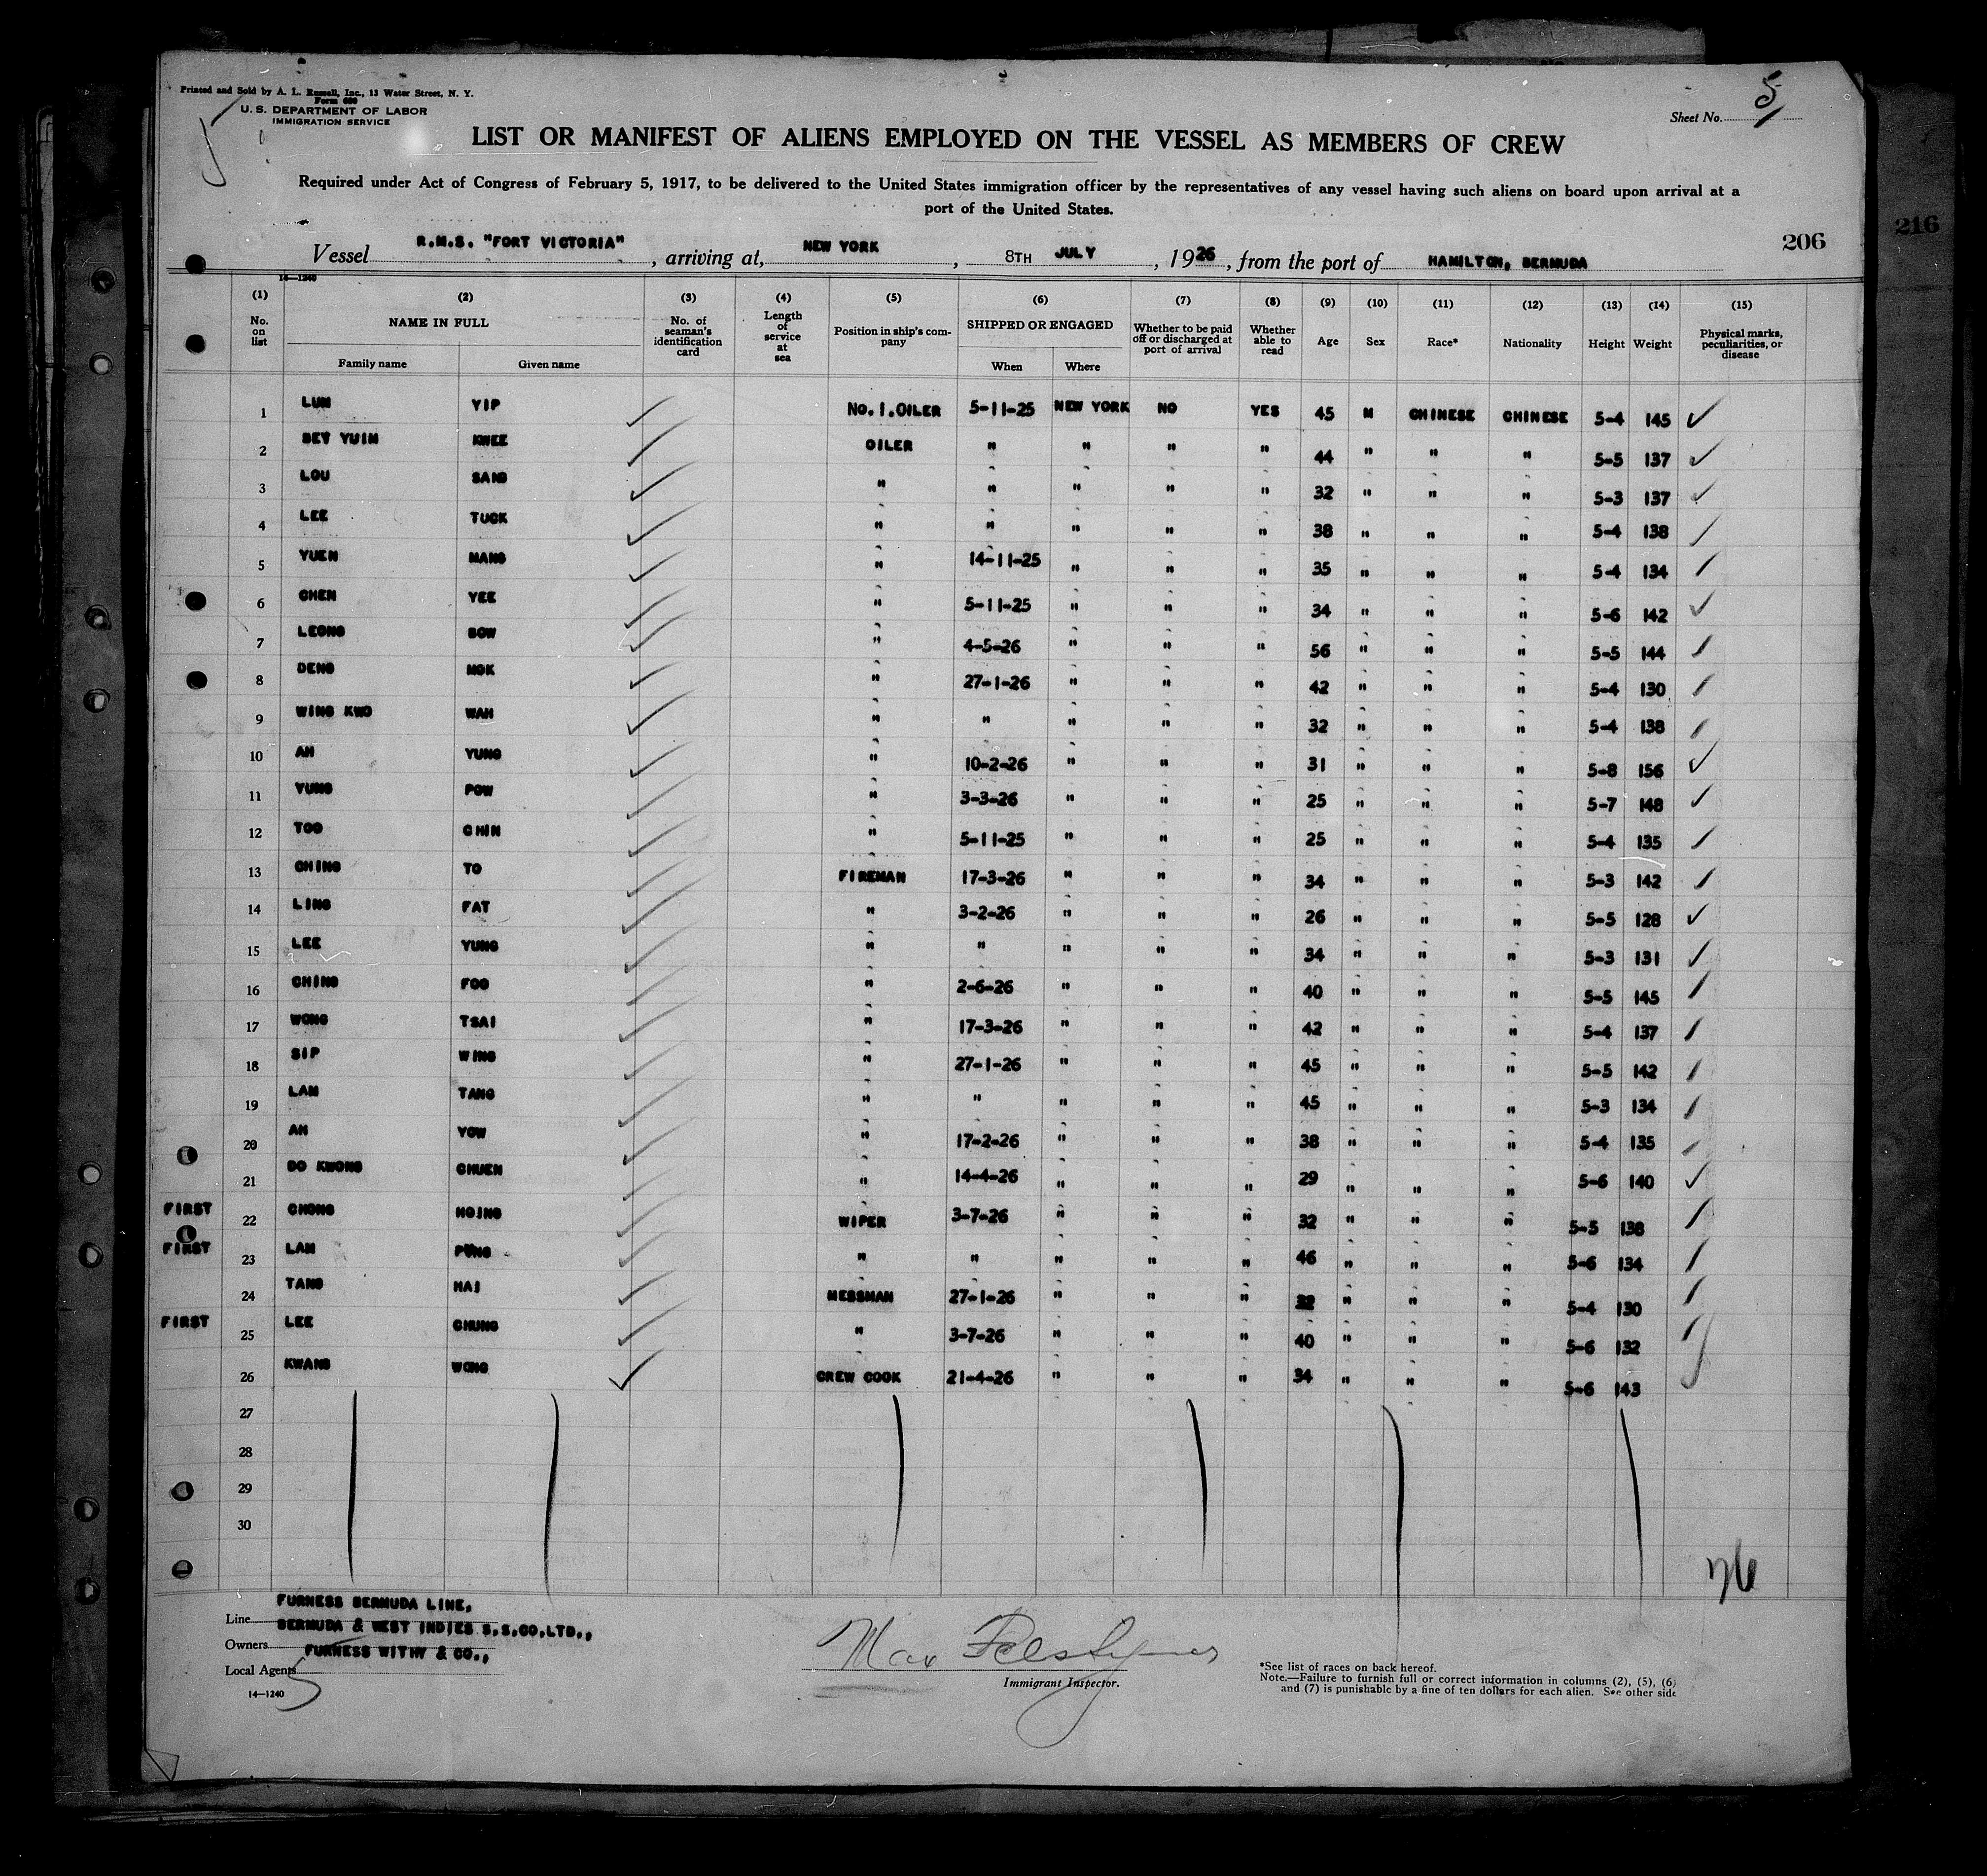 Printed and Sold by A. L. Russell, Inc., 13 Water Street, N. Y.
Form 680
U. S. DEPARTMENT OF LABOR
IMMIGRATION SERVICE
Sheet No. 5
LIST OR MANIFEST OF ALIENS EMPLOYED ON THE VESSEL AS MEMBERS OF CREW
Required under Act of Congress of February 5, 1917, to be delivered to the United States immigration officer by the representatives of any vessel having such aliens on board upon arrival at a
port of the United States.
206
216
Vessel R.M.S. "FORT VICTORIA", arriving at, NEW YORK, 8TH JULY, 1926, from the port of HAMILTON, BERMUDA
14—1240
(1) (2) (3) (4) (5) (6) (7) (8) (9) (10) (11) (12) (13) (14) (15)
No. on list NAME IN FULL Family name Given name No. of seaman's identification card Length of service at sea Position in ship's company SHIPPED OR ENGAGED When Where Whether to be paid off or discharged at port of arrival Whether able to read Age Sex Race* Nationality Height Weight Physical marks, peculiarities, or disease
1 LUM YIP No.1.OILER 5-11-25 NEW YORK NO YES 45 M CHINESE CHINESE 5-4 145
2 BEY YUIM KWEE OILER " " " " 44 " " " 5-5 137
3 LOU SANG " " " " " 32 " " " 5-3 137
4 LEE TUCK " " " " " 38 " " " 5-4 138
5 YUEN MANG " 14-11-25 " " " 35 " " " 5-4 134
6 CHEN YEE " 5-11-25 " " " 34 " " " 5-6 142
7 LEONG SOW " 4-5-26 " " " 56 " " " 5-5 144
8 DENG MOK " 27-1-26 " " " 42 " " " 5-4 130
9 WING KWO WAH " " " " " 32 " " " 5-4 138
10 AH YUNG " 10-2-26 " " " 31 " " " 5-8 156
11 YUNG POW " 3-3-26 " " " 25 " " " 5-7 148
12 TOO CHIN " 5-11-25 " " " 25 " " " 5-4 135
13 CHING TO FIREMAN 17-3-26 " " " 34 " " " 5-3 142
14 LING FAT " 3-2-26 " " " 26 " " " 5-5 128
15 LEE YUNG " " " " " 34 " " " 5-3 131
16 CHING FOO " 2-6-26 " " " 40 " " " 5-5 145
17 WONG TSAI " 17-3-26 " " " 42 " " " 5-4 137
18 SIP WING " 27-1-26 " " " 45 " " " 5-5 142
19 LAM TANG " " " " " 45 " " " 5-3 134
20 AH YOW " 17-2-26 " " " 38 " " " 5-4 135
21 DO KWONG CHUEN " 14-4-26 " " " 29 " " " 5-6 140
FIRST 22 CHONG HOING WIPER 3-7-26 " " " 32 " " " 5-5 138
FIRST 23 LAM PUNG " " " " " 46 " " " 5-6 134
24 TANG HAI MESSMAN 27-1-26 " " " 32 " " " 5-4 130
FIRST 25 LEE CHUNG " 3-7-26 " " " 40 " " " 5-6 132
26 KWANG WONG CREW COOK 21-4-26 " " " 34 " " " 5-6 143
27
28
29
30
26
Line FURNESS BERMUDA LINE,
Owners BERMUDA & WEST INDIES S.S.CO.LTD.,
Local Agents FURNESS WITHY & CO.,
14—1240
Max
Immigrant Inspector.
*See list of races on back hereof.
Note.—Failure to furnish full or correct information in columns (2), (5), (6)
and (7) is punishable by a fine of ten dollars for each alien. See other side